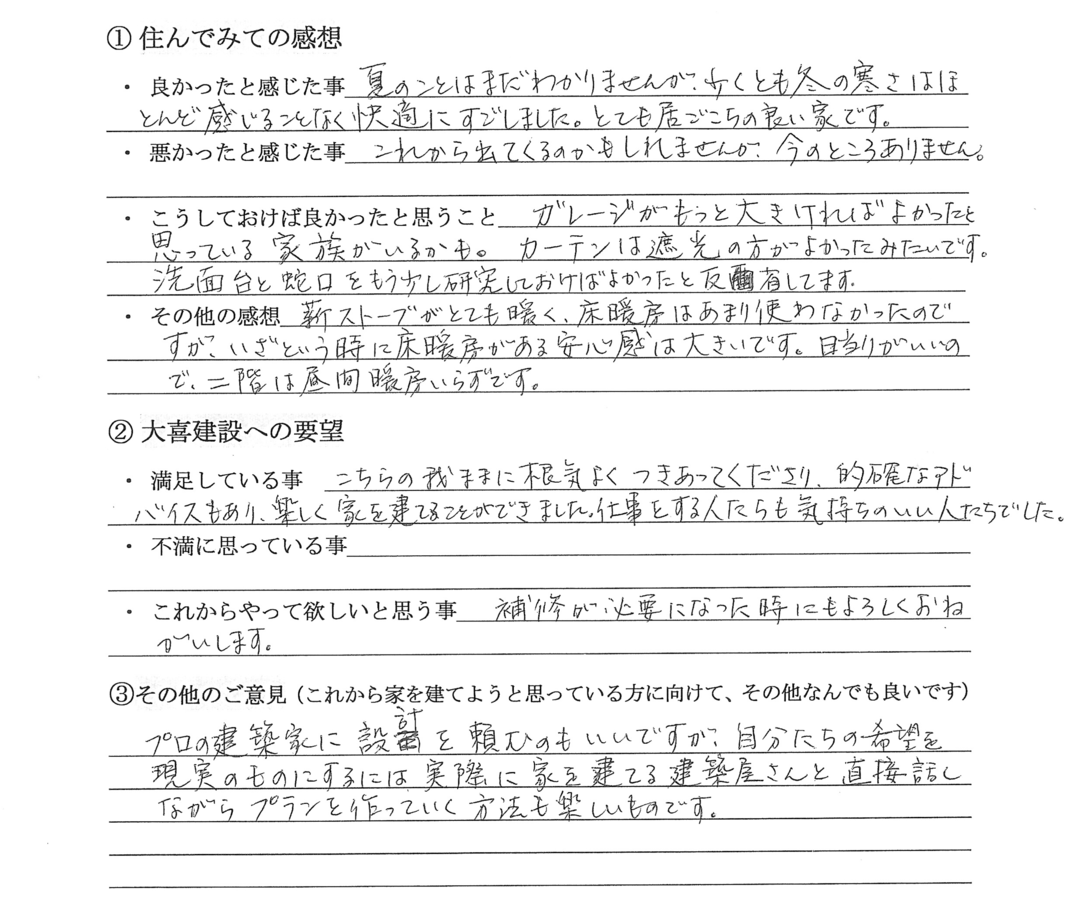 ① 住んでみての感想
・ 良かったと感じた事 夏のことはまだわかりませんが、少くとも冬の寒さはほ
とんど感じることなく快適にすごしました。とても居ごこちの良い家です。
・ 悪かったと感じた事 これから出てくるのかもしれませんが、今のところありません。
・ こうしておけば良かったと思うこと ガレージがもっと大きければよかったと
思っている家族がいるかも。 カーテンは遮光の方がよかったみたいです。
洗面台と蛇口をもう少し研究しておけばよかったと反省してます。
・ その他の感想 薪ストーブがとても暖く、床暖房はあまり使わなかったので
すが、いざという時に床暖房がある安心感は大きいです。日当りがいいの
で、二階は昼間暖房いらずです。
② 大喜建設への要望
・ 満足している事 こちらの我ままに根気よくつきあってくださり、的確なアド
バイスもあり、楽しく家を建てることができました。仕事をする人たちも気持ちのいい人たちでした。
・ 不満に思っている事
・ これからやって欲しいと思う事 補修が必要になった時にもよろしくおね
がいします。
③その他のご意見（これから家を建てようと思っている方に向けて、その他なんでも良いです）
プロの建築家に設計を頼むのもいいですが、自分たちの希望を
現実のものにするには実際に家を建てる建築屋さんと直接話し
ながらプランを作っていく方法も楽しいものです。